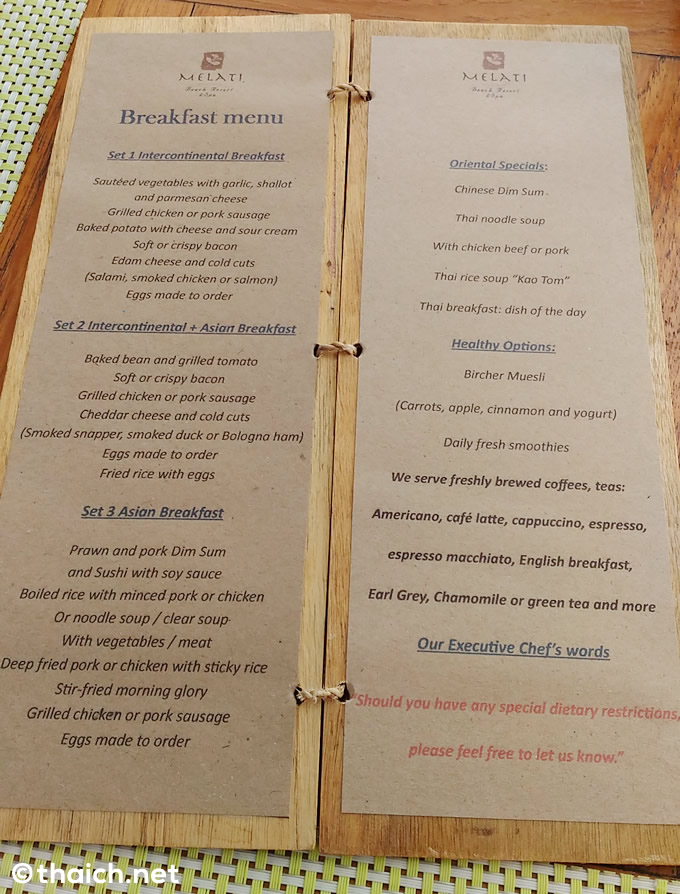 MELATI
Beach Resort
& Spa
Breakfast menu
Set 1 Intercontinental Breakfast
Sautéed vegetables with garlic, shallot
and parmesan cheese
Grilled chicken or pork sausage
Baked potato with cheese and sour cream
Soft or crispy bacon
Edam cheese and cold cuts
(Salami, smoked chicken or salmon)
Eggs made to order
Set 2 Intercontinental + Asian Breakfast
Baked bean and grilled tomato
Soft or crispy bacon
Grilled chicken or pork sausage
Cheddar cheese and cold cuts
(Smoked snapper, smoked duck or Bologna ham)
Eggs made to order
Fried rice with eggs
Set 3 Asian Breakfast
Prawn and pork Dim Sum
and Sushi with soy sauce
Boiled rice with minced pork or chicken
Or noodle soup / clear soup
With vegetables / meat
Deep fried pork or chicken with sticky rice
Stir-fried morning glory
Grilled chicken or pork sausage
Eggs made to order
MELATI
Beach Resort
& Spa
Oriental Specials:
Chinese Dim Sum
Thai noodle soup
With chicken beef or pork
Thai rice soup “Kao Tom”
Thai breakfast: dish of the day
Healthy Options:
Bircher Muesli
(Carrots, apple, cinnamon and yogurt)
Daily fresh smoothies
We serve freshly brewed coffees, teas:
Americano, café latte, cappuccino, espresso,
espresso macchiato, English breakfast,
Earl Grey, Chamomile or green tea and more
Our Executive Chef’s words
“Should you have any special dietary restrictions,
please feel free to let us know.”
©thaich.net